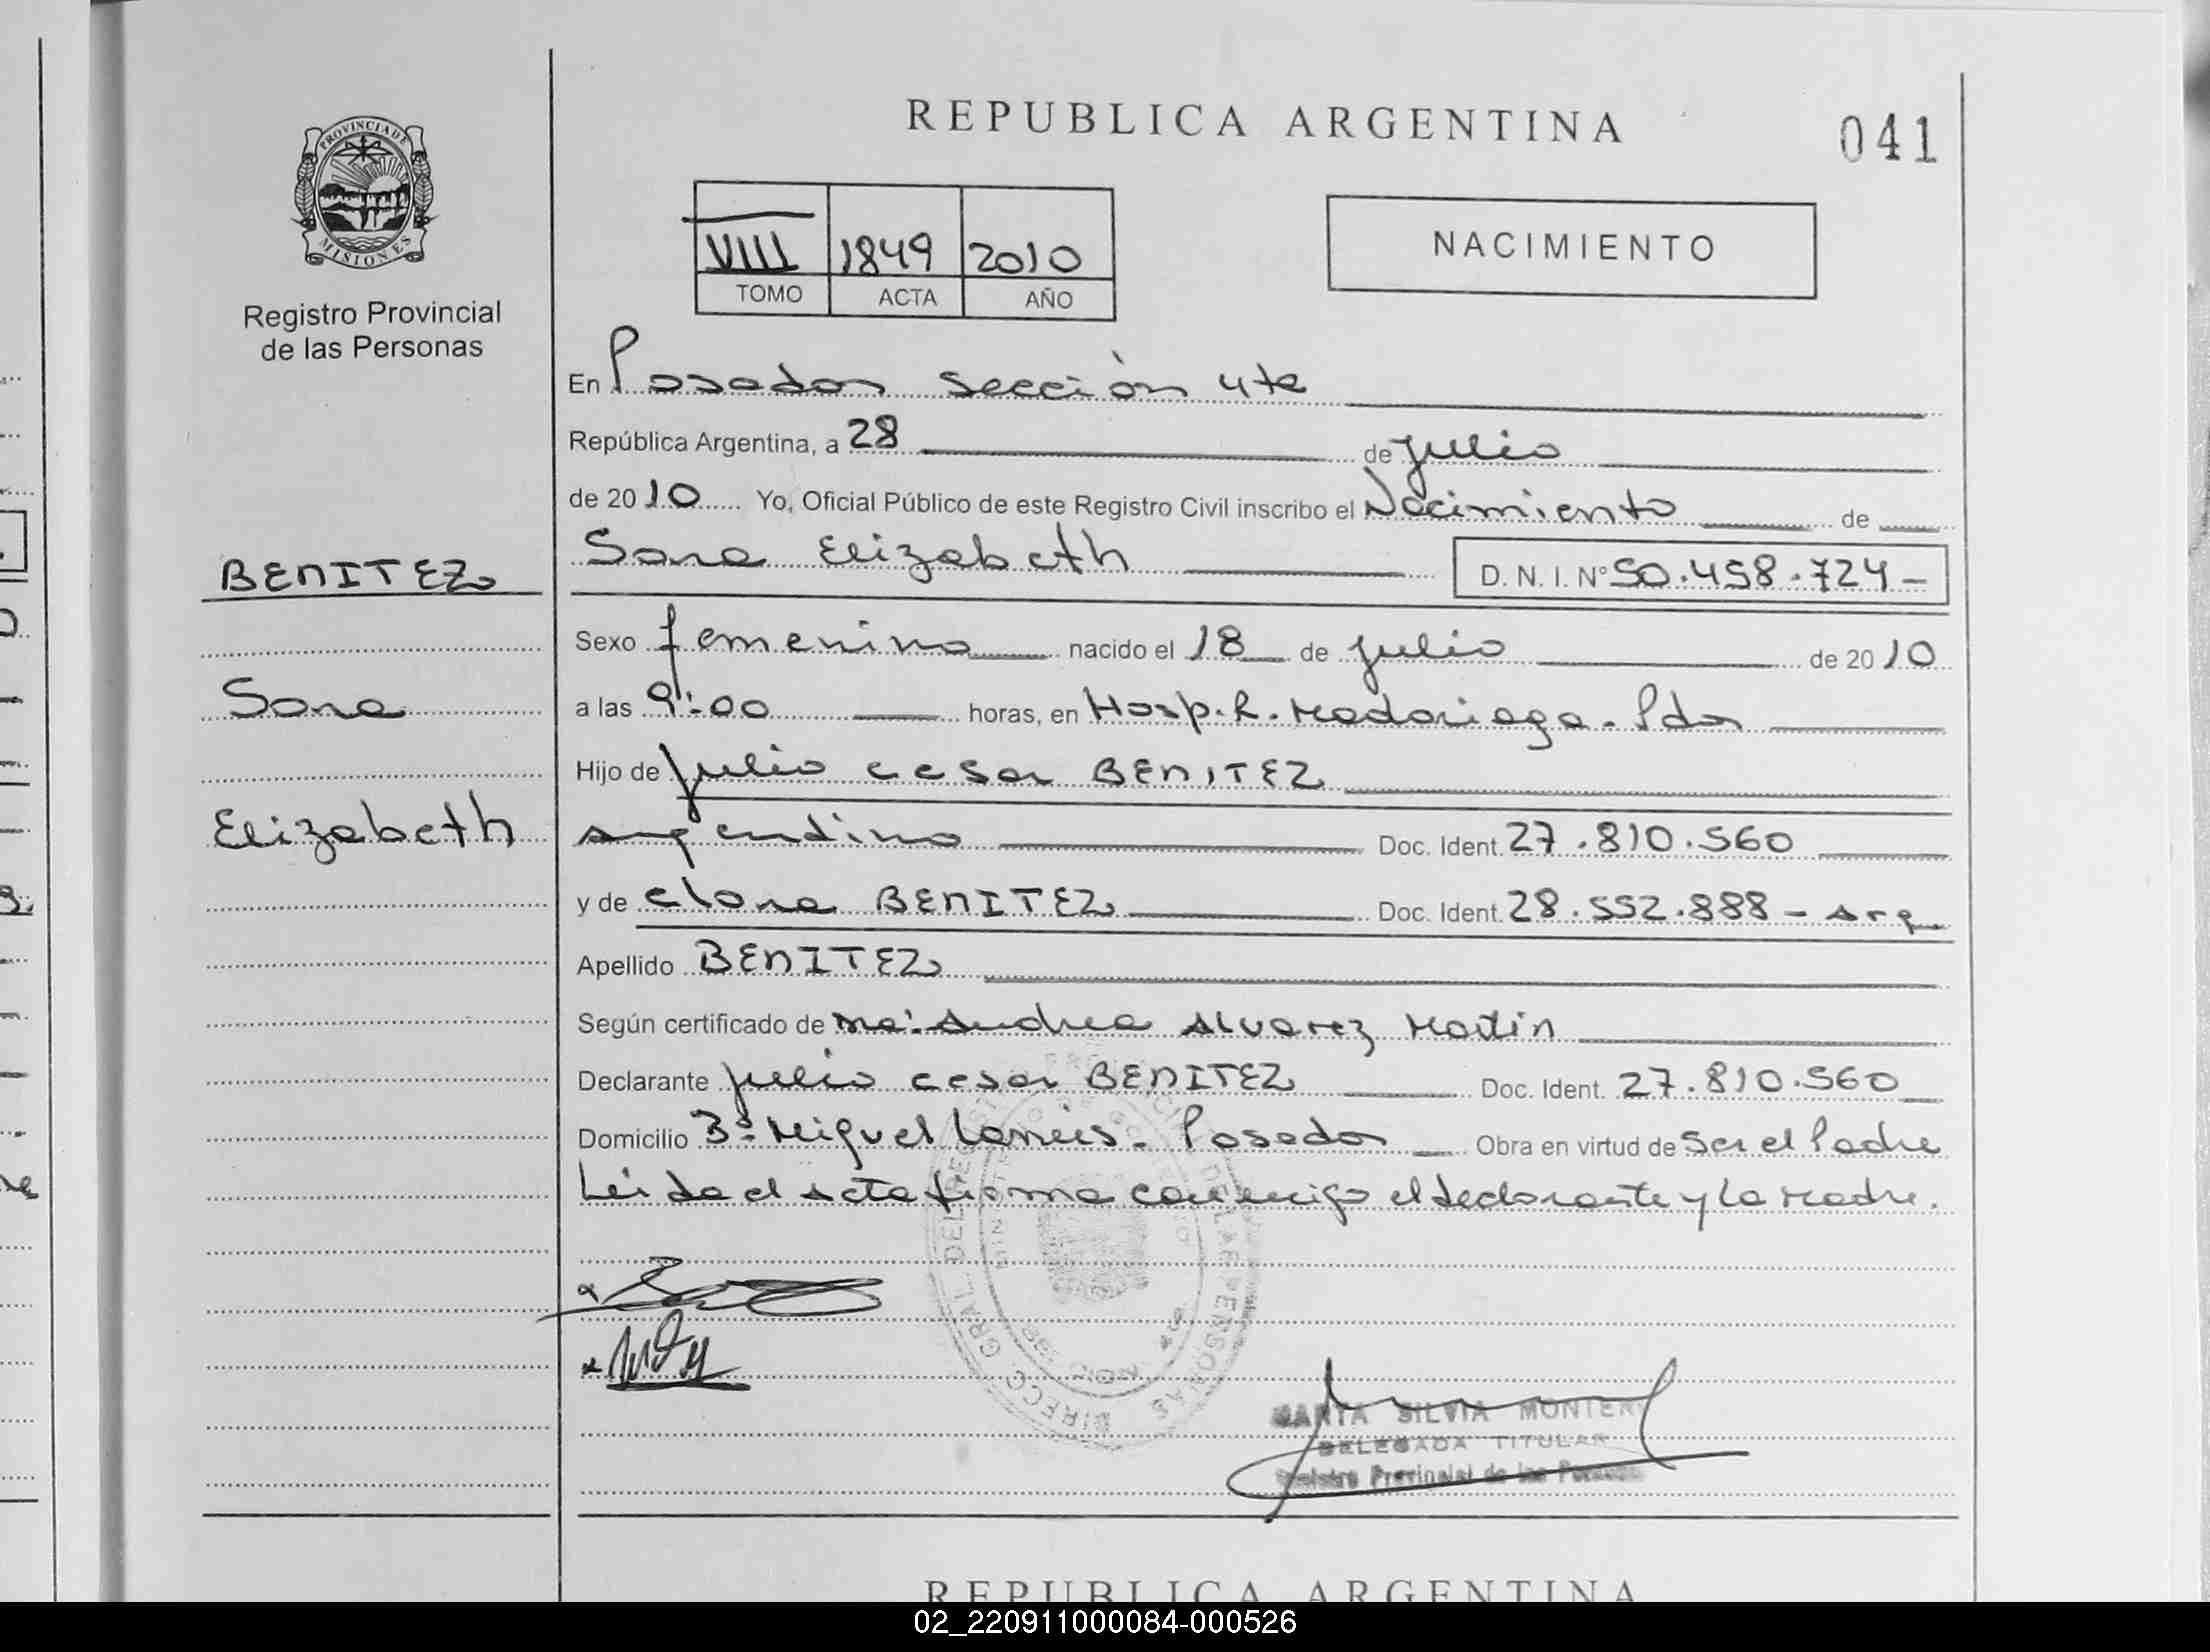 REPUBLICA ARGENTINA
041
PROVINCIA DE
MISIONES
Registro Provincial
de las Personas
VIII 1849 2010
TOMO ACTA AÑO
NACIMIENTO
En Posadas Sección 4ta
República Argentina, a 28 de Julio
de 2010 Yo, Oficial Público de este Registro Civil inscribo el Nacimiento de
Sara Elizabeth D. N. I. Nº 50.458.724-
BENITEZ
Sara
Elizabeth
Sexo femenino nacido el 18 de Julio de 2010
a las 9:00 horas, en Hosp. R. Madariaga - Pdas
Hijo de Julio Cesar BENITEZ
argentino Doc. Ident. 27.810.560
y de Clara BENITEZ Doc. Ident. 28.552.888 - Arg
Apellido BENITEZ
Según certificado de Ma. Andrea Alvarez Martin
Declarante Julio Cesar BENITEZ Doc. Ident. 27.810.560
Domicilio Miguel Lanús - Posadas Obra en virtud de Ser el Padre
Leída el acta firma conmigo el declarante y la Madre.
DIRECC. GRAL. DEL REGISTRO PROVINCIAL DE LAS PERSONAS
MARTA SILVIA MONTERO
DELEGADA TITULAR
Registro Provincial de las Personas
REPUBLICA ARGENTINA
02_220911000084-000526